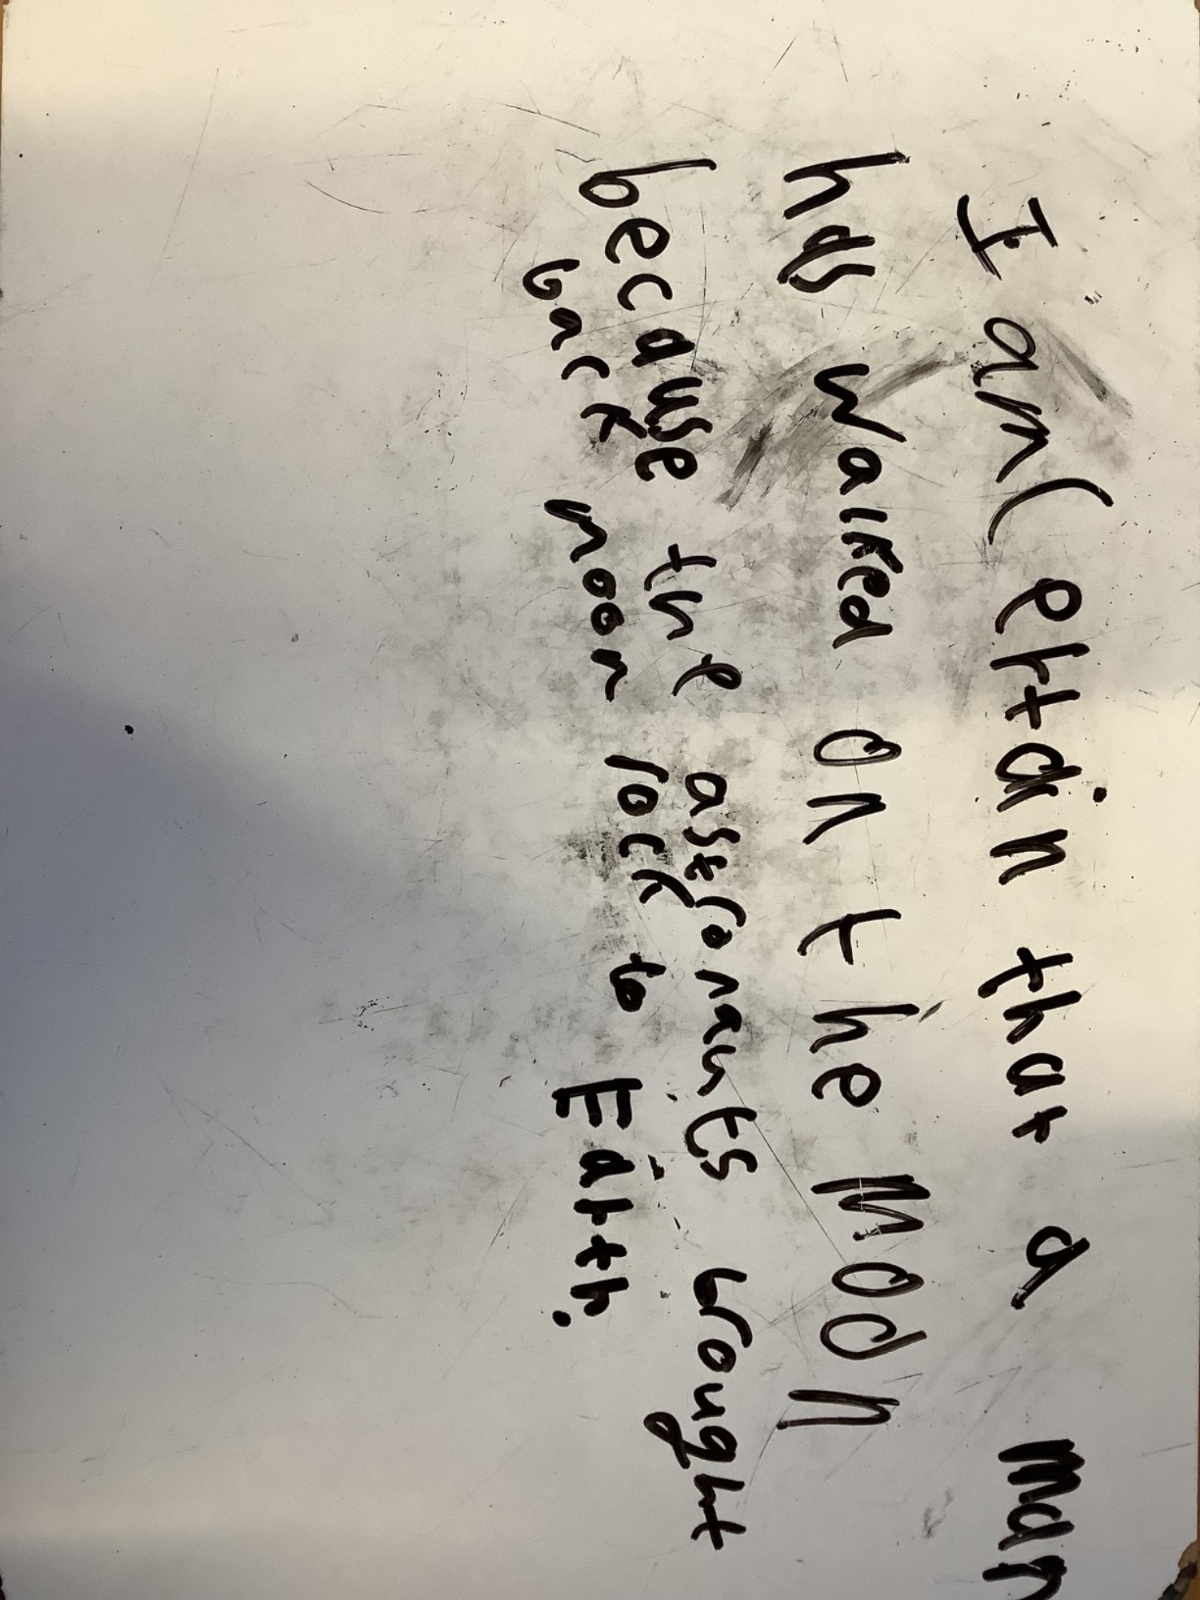 I am certain that a man
has walked on the moon
because the astronauts brought
back moon rock to Earth.